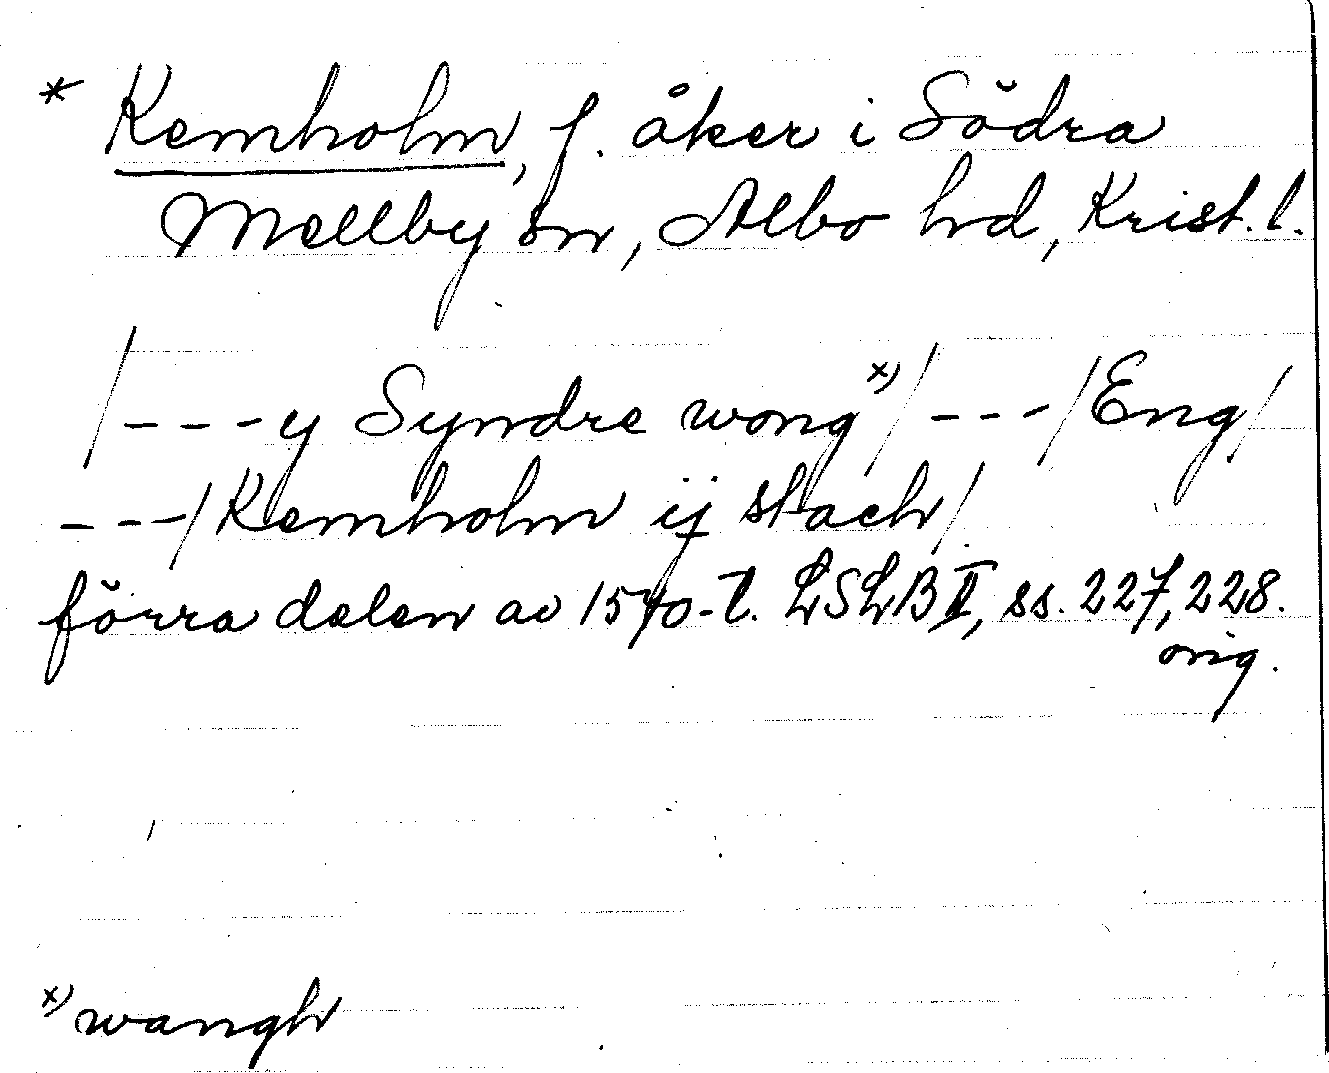 * Kemholm, f. åker i Södra
Mellby sn, Albo hd, Krist. l.
/---y Syndre wong x)/---/Eng/
---/Kemholm ij stach/
förra delen av 1570-t. LSLB II, ss. 227, 228.
orig.
x) wangh